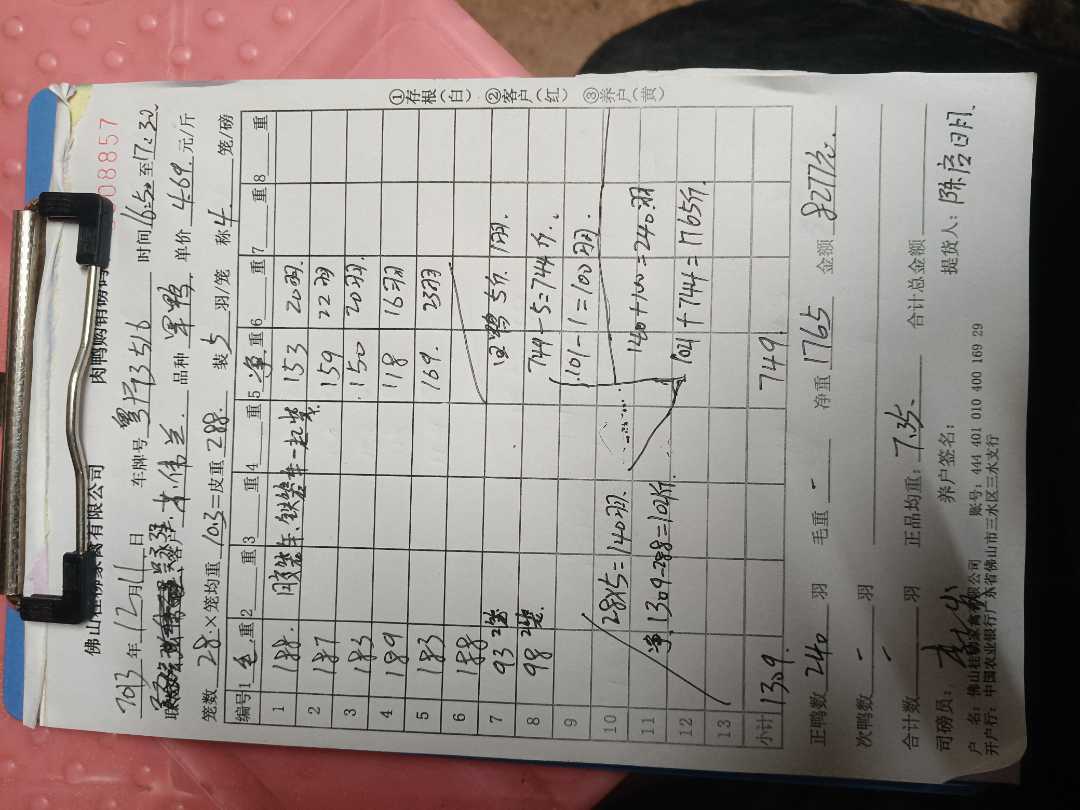 佛山桂柳家禽有限公司 肉鸭购销磅码
08857
2023年12月11日 车牌号 粤 时间16:50至17:30
品种 单价4.69元/斤
笼数28×笼均重10.3=皮重288. 装5羽/笼 称4笼/磅
编号 1毛重 2 重 3 重 4 重 5净重 6 重 7 重 8 重
1 188. 153 20羽.
2 187 159 22羽
3 183 150 20羽.
4 189 118 16羽
5 183 169. 23羽
6 188
7 93 2笼
8 98 2笼. 749-5=744斤.
9 101-1=100羽.
10 28×5=140羽.
11 净.1309-288=1021斤. 140+100=240羽
12 1021+744=1765斤.
13
小计 1309. 749.
正鸭数 240 羽 毛重 - 净重 1765 金额 8277元.
次鸭数 - 羽
合计数 - 羽 正品均重:7.35. 合计总金额
司磅员: 养户签名: 提货人:
户 名:佛山桂柳家禽有限公司 账号:444 401 010 400 169 29
开户行:中国农业银行广东省佛山市三水区三水支行
①存根(白) ②客户(红) ③养户(黄)